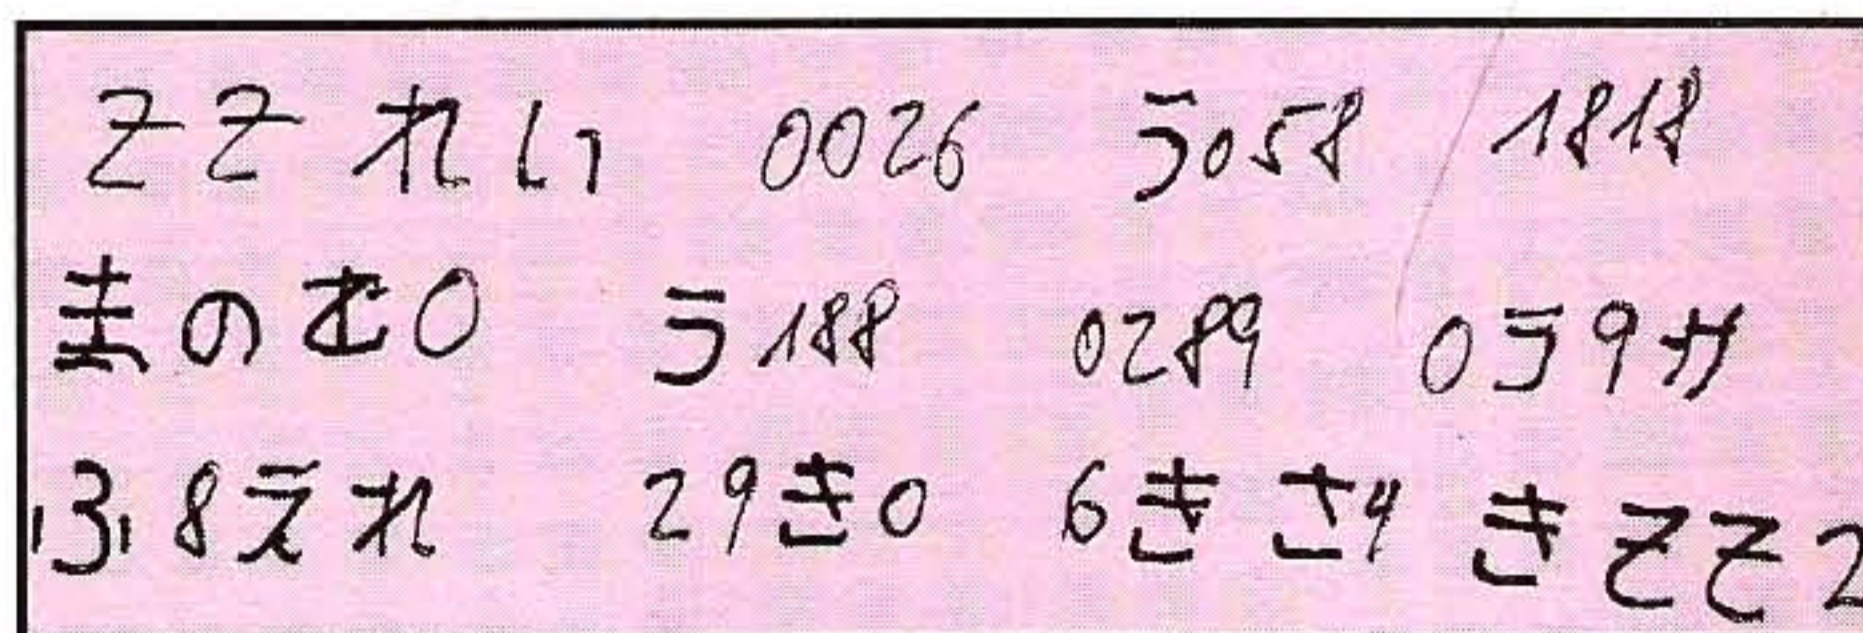 そそれい 0026 う058 1818
まのむ0 う188 0289 0う9か
ふ8えれ 29き0 6きさ4 きそそ2